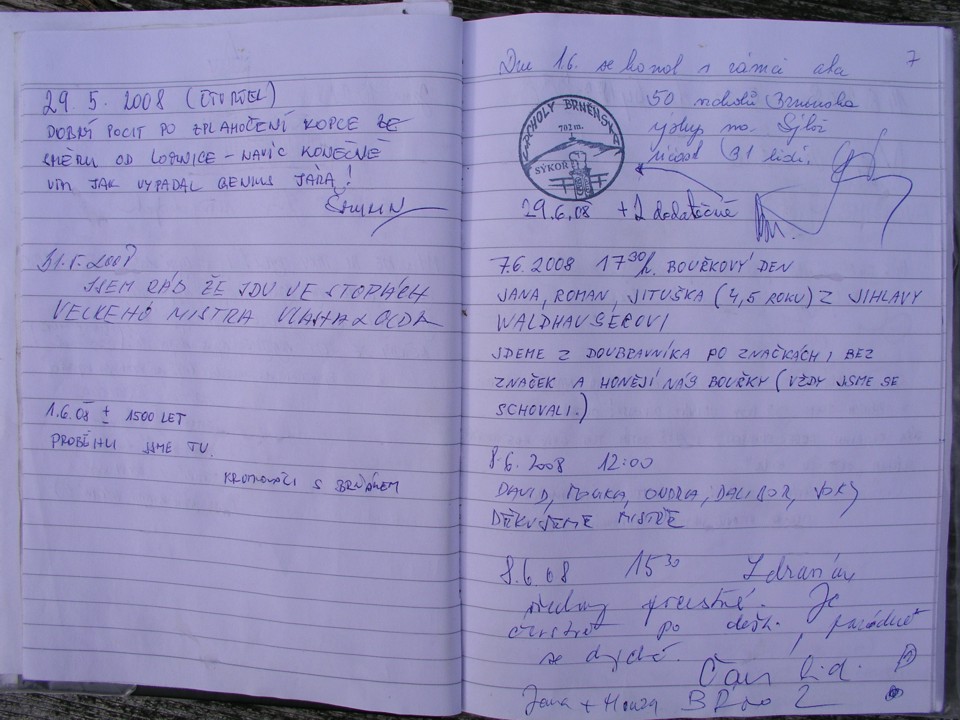 29. 5. 2008 (ČTVRTEK)
DOBRÝ POCIT PO ZPLAHOČENÍ KOPCE ZE
SMĚRU OD LOMNICE - NAVÍC KONEČNĚ
VÍM JAK VYPADAL GENIUS JARA!
31.5.2008
JSEM RÁD ŽE JDU VE STOPÁCH
VELKÉHO MISTRA
1.6.08 ± 1500 LET
PROBĚHLI JSME TU.
S BRŇÁKEM
7
Dne 1.6. se konal v rámci akce
50 vrcholů Brněnska
výstup na Sýkoř
účast 31 lidí.
VRCHOLY BRNĚNSKA
702 m.
SÝKOŘ
29.6.08 + 2 dodatečně
7.6.2008 17 30 h. BOUŘKOVÝ DEN
JANA, ROMAN, JITUŠKA (4,5 ROKU) Z JIHLAVY
WALDHAUSEROVI
JDEME Z DOUBRAVNÍKA PO ZNAČKÁCH I BEZ
ZNAČEK A HONĚJÍ NÁS BOUŘKY (VŽDY JSME SE
SCHOVALI.)
8.6.2008 12:00
DAVID, ONDRA, DALIBOR,
DĚKUJEME MISTŘE
8.6.08 15 30 Zdravíme
všechny přeživší. Je
čerstvě po dešti,
se dýchá.
Jana + Honza BRno 2